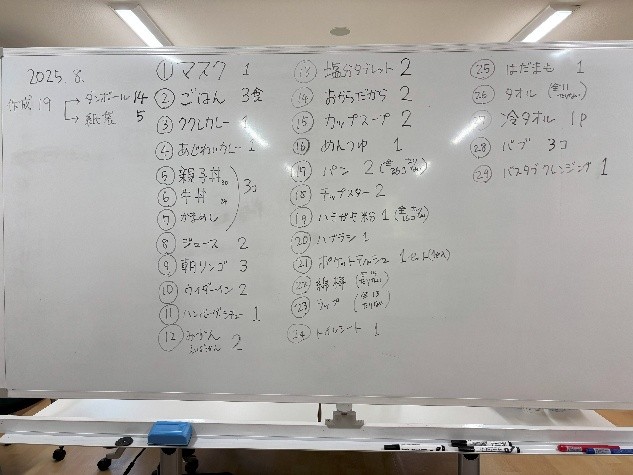 2025. 8.
作成 19
→ ダンボール 14
→ 紙袋 5
① マスク 1
② ごはん 3食
③ ククレカレー 1
④ あじわいカレー
⑤ 親子丼
⑥ 牛丼
⑦ かまめし
3コ
⑧ ジュース 2
⑨ 朝リンゴ 3
⑩ ウイダーイン 2
⑪ ハンバーグシチュー 1
⑫ みかん 2
⑬ 塩分タブレット 2
⑭ おからだから 2
⑮ カップスープ 2
⑯ めんつゆ 1
⑰ パン 2
⑱ チップスター 2
⑲ ハミガキ粉 1
⑳ ハブラシ 1
㉑ ポケットティッシュ 1
㉒ 綿棒
㉓ ラップ
㉔ トイレシート 1
㉕ はだまも 1
㉖ タオル
冷タオル 1P
㉘ バブ 3コ
㉙ バスタブクレンジング 1